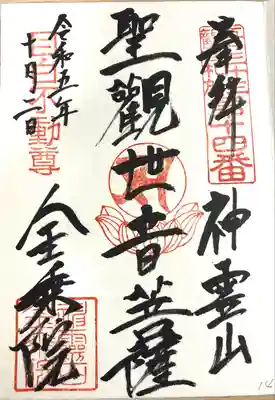 奉拝 神霊山
十四番
聖觀世音菩薩
令和五年
十月二日
目白不動尊
金乗院
14